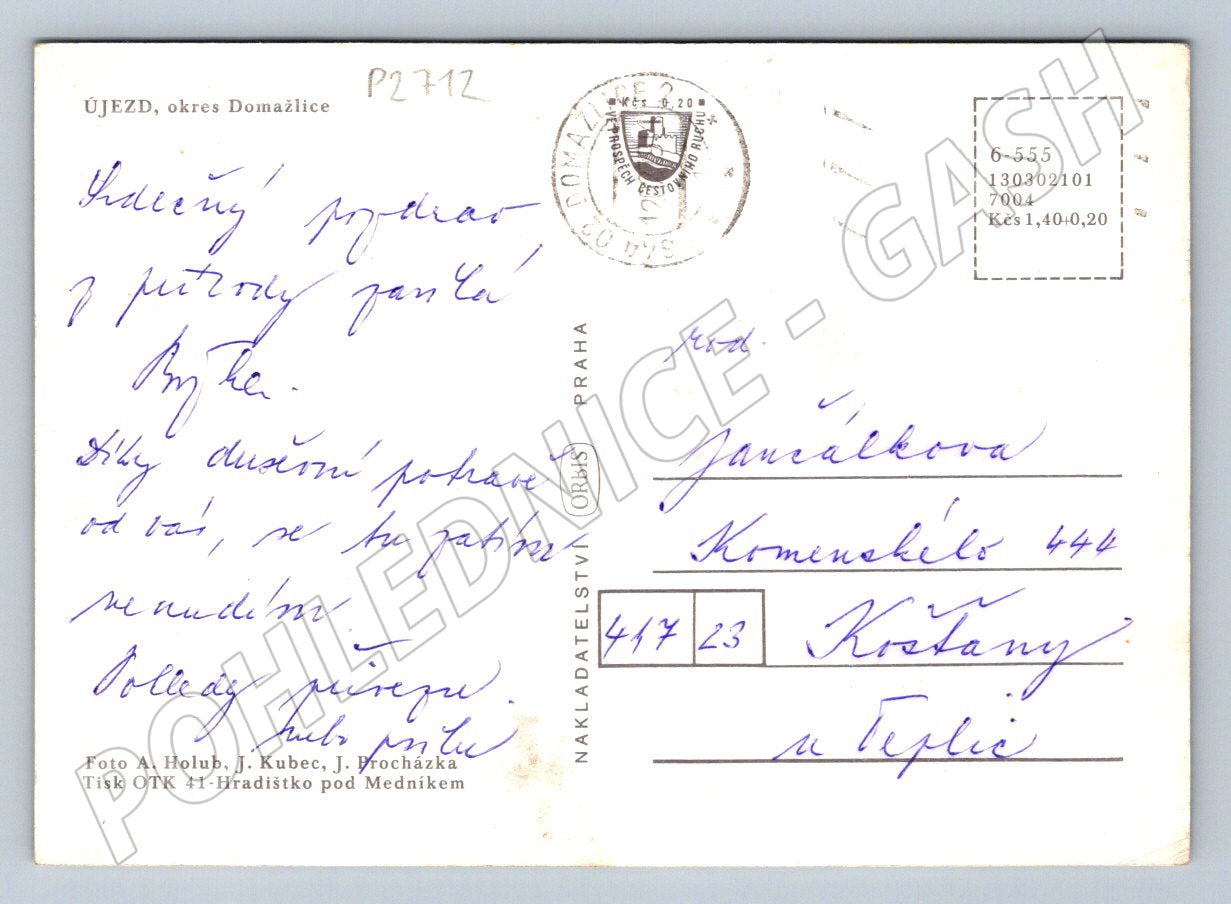 P2712
ÚJEZD, okres Domažlice
Srdečný pozdrav
z přírody zasílá
Díky duševní potravě
od vás, se tu zatím
nenudím
Pohledy přivezu
nebo pošlu
Foto A. Holub, J. Kubec, J. Procházka
Tisk OTK 41-Hradištko pod Medníkem
NAKLADATELSTVÍ ORBIS PRAHA
344 02 DOMAŽLICE 2
Kčs 0,20
VE PROSPĚCH CESTOVNÍHO RUCHU
6-555
130302101
7004
Kčs 1,40+0,20
rod.
Jančálkova
Komenského 444
417 23 Košťany
u Teplic
POHLEDNICE - GASH